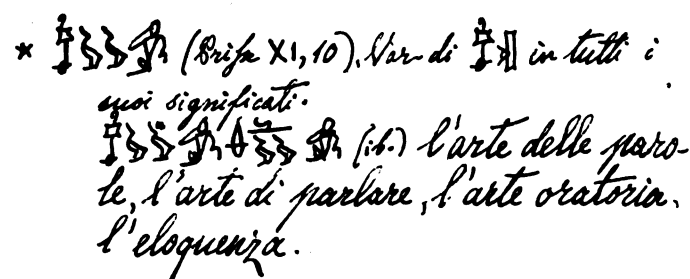 * (Prisse XI, 10). Var. di in tutti i
suoi significati.
(ib.) l'arte delle paro-
le, l'arte di parlare, l'arte oratoria,
l'eloquenza.